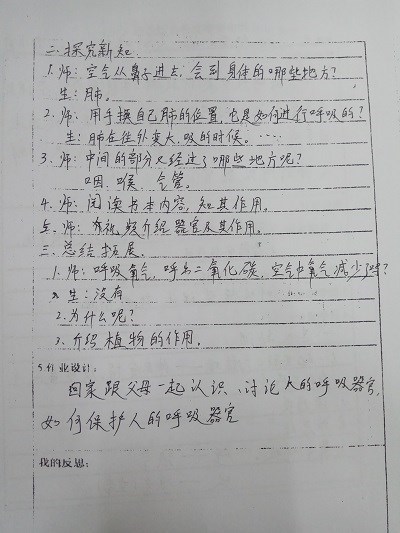 二、探究新知
1. 师: 空气从鼻子进去, 会到身体的哪些地方?
生: 肺。
2. 师: 用手摸自己肺的位置, 也是如何进行呼吸的?
生: 肺在往外变大, 吸的时候。……
3. 师: 中间的部分又经过了哪些地方呢?
咽、喉、气管。
4. 师: 阅读书本内容, 知其作用。
5. 师: 视频介绍器官及其作用。
三、总结拓展
1. 师: 呼吸氧气, 呼出二氧化碳, 空气中氧气减少了吗?
生: 没有
2. 为什么呢?
3. 介绍植物的作用。
5.作业设计:
回家跟父母一起认识、讨论人的呼吸器官,
如何保护人的呼吸器官
我的反思: